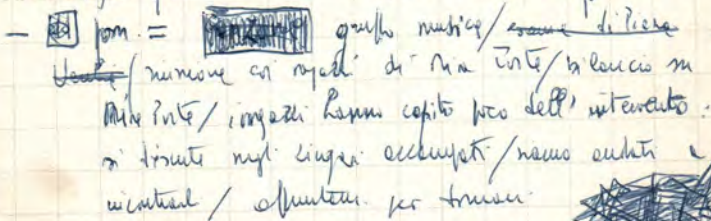 – pom. = gruppo musica / esame di Piena
/ riunione coi ragazzi di Mira Porte / bilancio su
Mira Porte / i ragazzi hanno capito poco dell'intervento:
si discute sugli zingari accampati / siamo andati a
incontrarli / appuntam. per